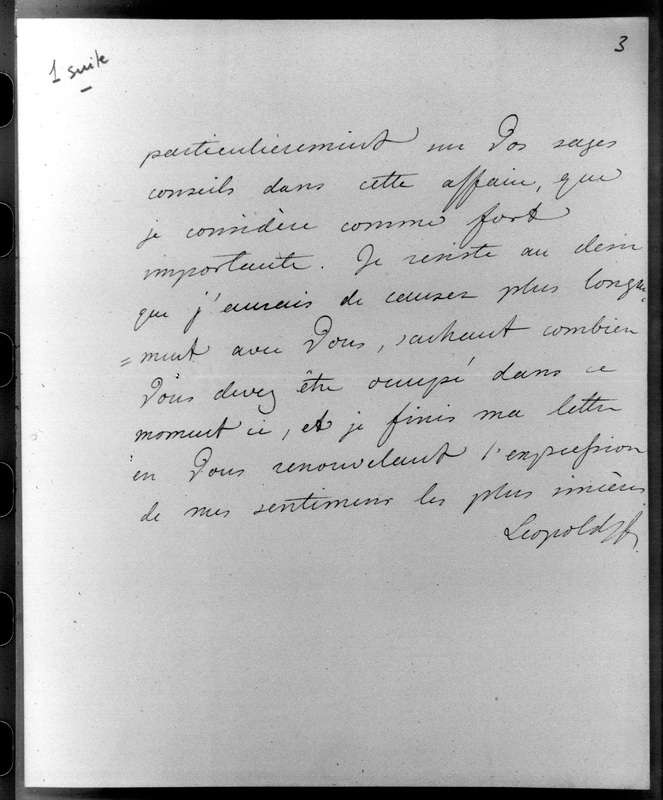 1 suite
3
particulierement sur Vos sages
conseils dans cette affaire, que
je considère comme fort
importante. Je resiste au desir
que j'aurais de causer plus longue
=ment avec Vous, sachant combien
Vous devez être occupé dans ce
moment ci, et je finis ma lettre
en Vous renouvelant l'expression
de mes sentimens les plus sincères
Leopold